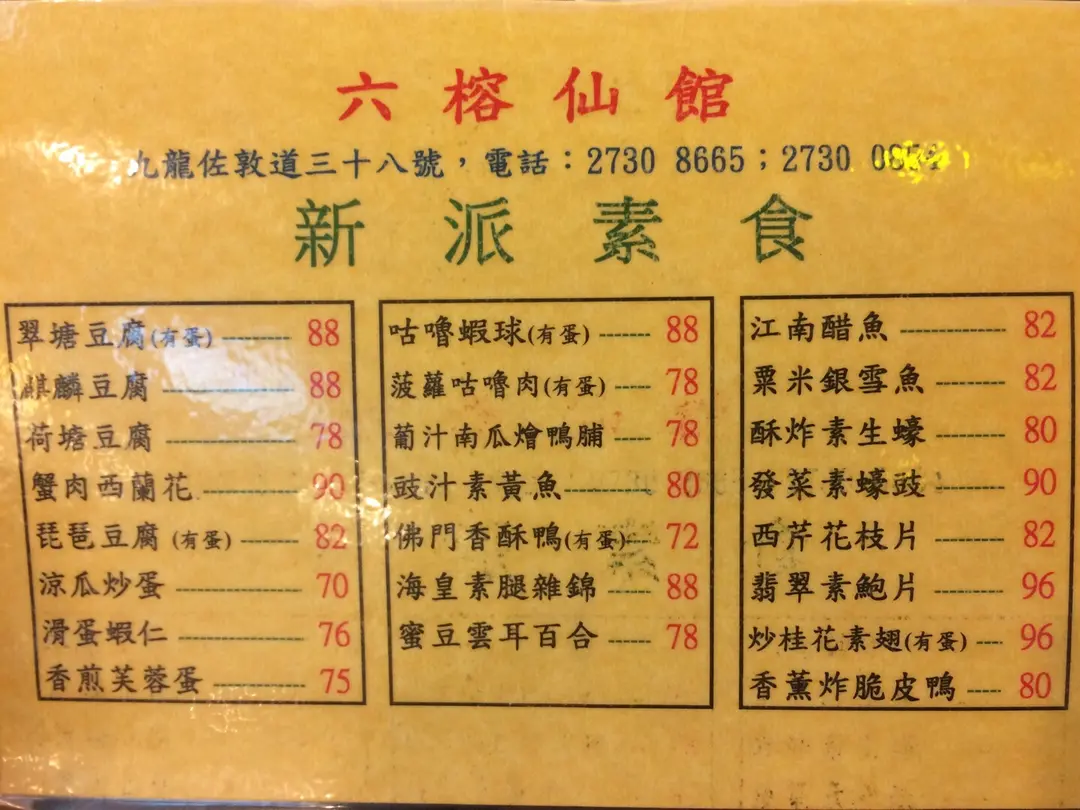 六榕仙館
九龍佐敦道三十八號，電話：2730 8665；2730
新派素食
翠塘豆腐(有蛋) -------- 88
麒麟豆腐 -------- 88
荷塘豆腐 -------- 78
蟹肉西蘭花 -------- 90
琵琶豆腐 (有蛋) ------ 82
涼瓜炒蛋 -------- 70
滑蛋蝦仁 -------- 76
香煎芙蓉蛋 -------- 75
咕嚕蝦球(有蛋) ------ 88
菠蘿咕嚕肉(有蛋) ---- 78
葡汁南瓜燴鴨脯 ---- 78
豉汁素黃魚-------- 80
佛門香酥鴨(有蛋)--- 72
海皇素腿雜錦 ----- 88
蜜豆雲耳百合 ----- 78
江南醋魚 -------- 82
粟米銀雪魚 ------- 82
酥炸素生蠔 ------- 80
發菜素蠔豉 ------- 90
西芹花枝片 ------- 82
翡翠素鮑片 ------- 96
炒桂花素翅(有蛋) --- 96
香薰炸脆皮鴨 ---- 80